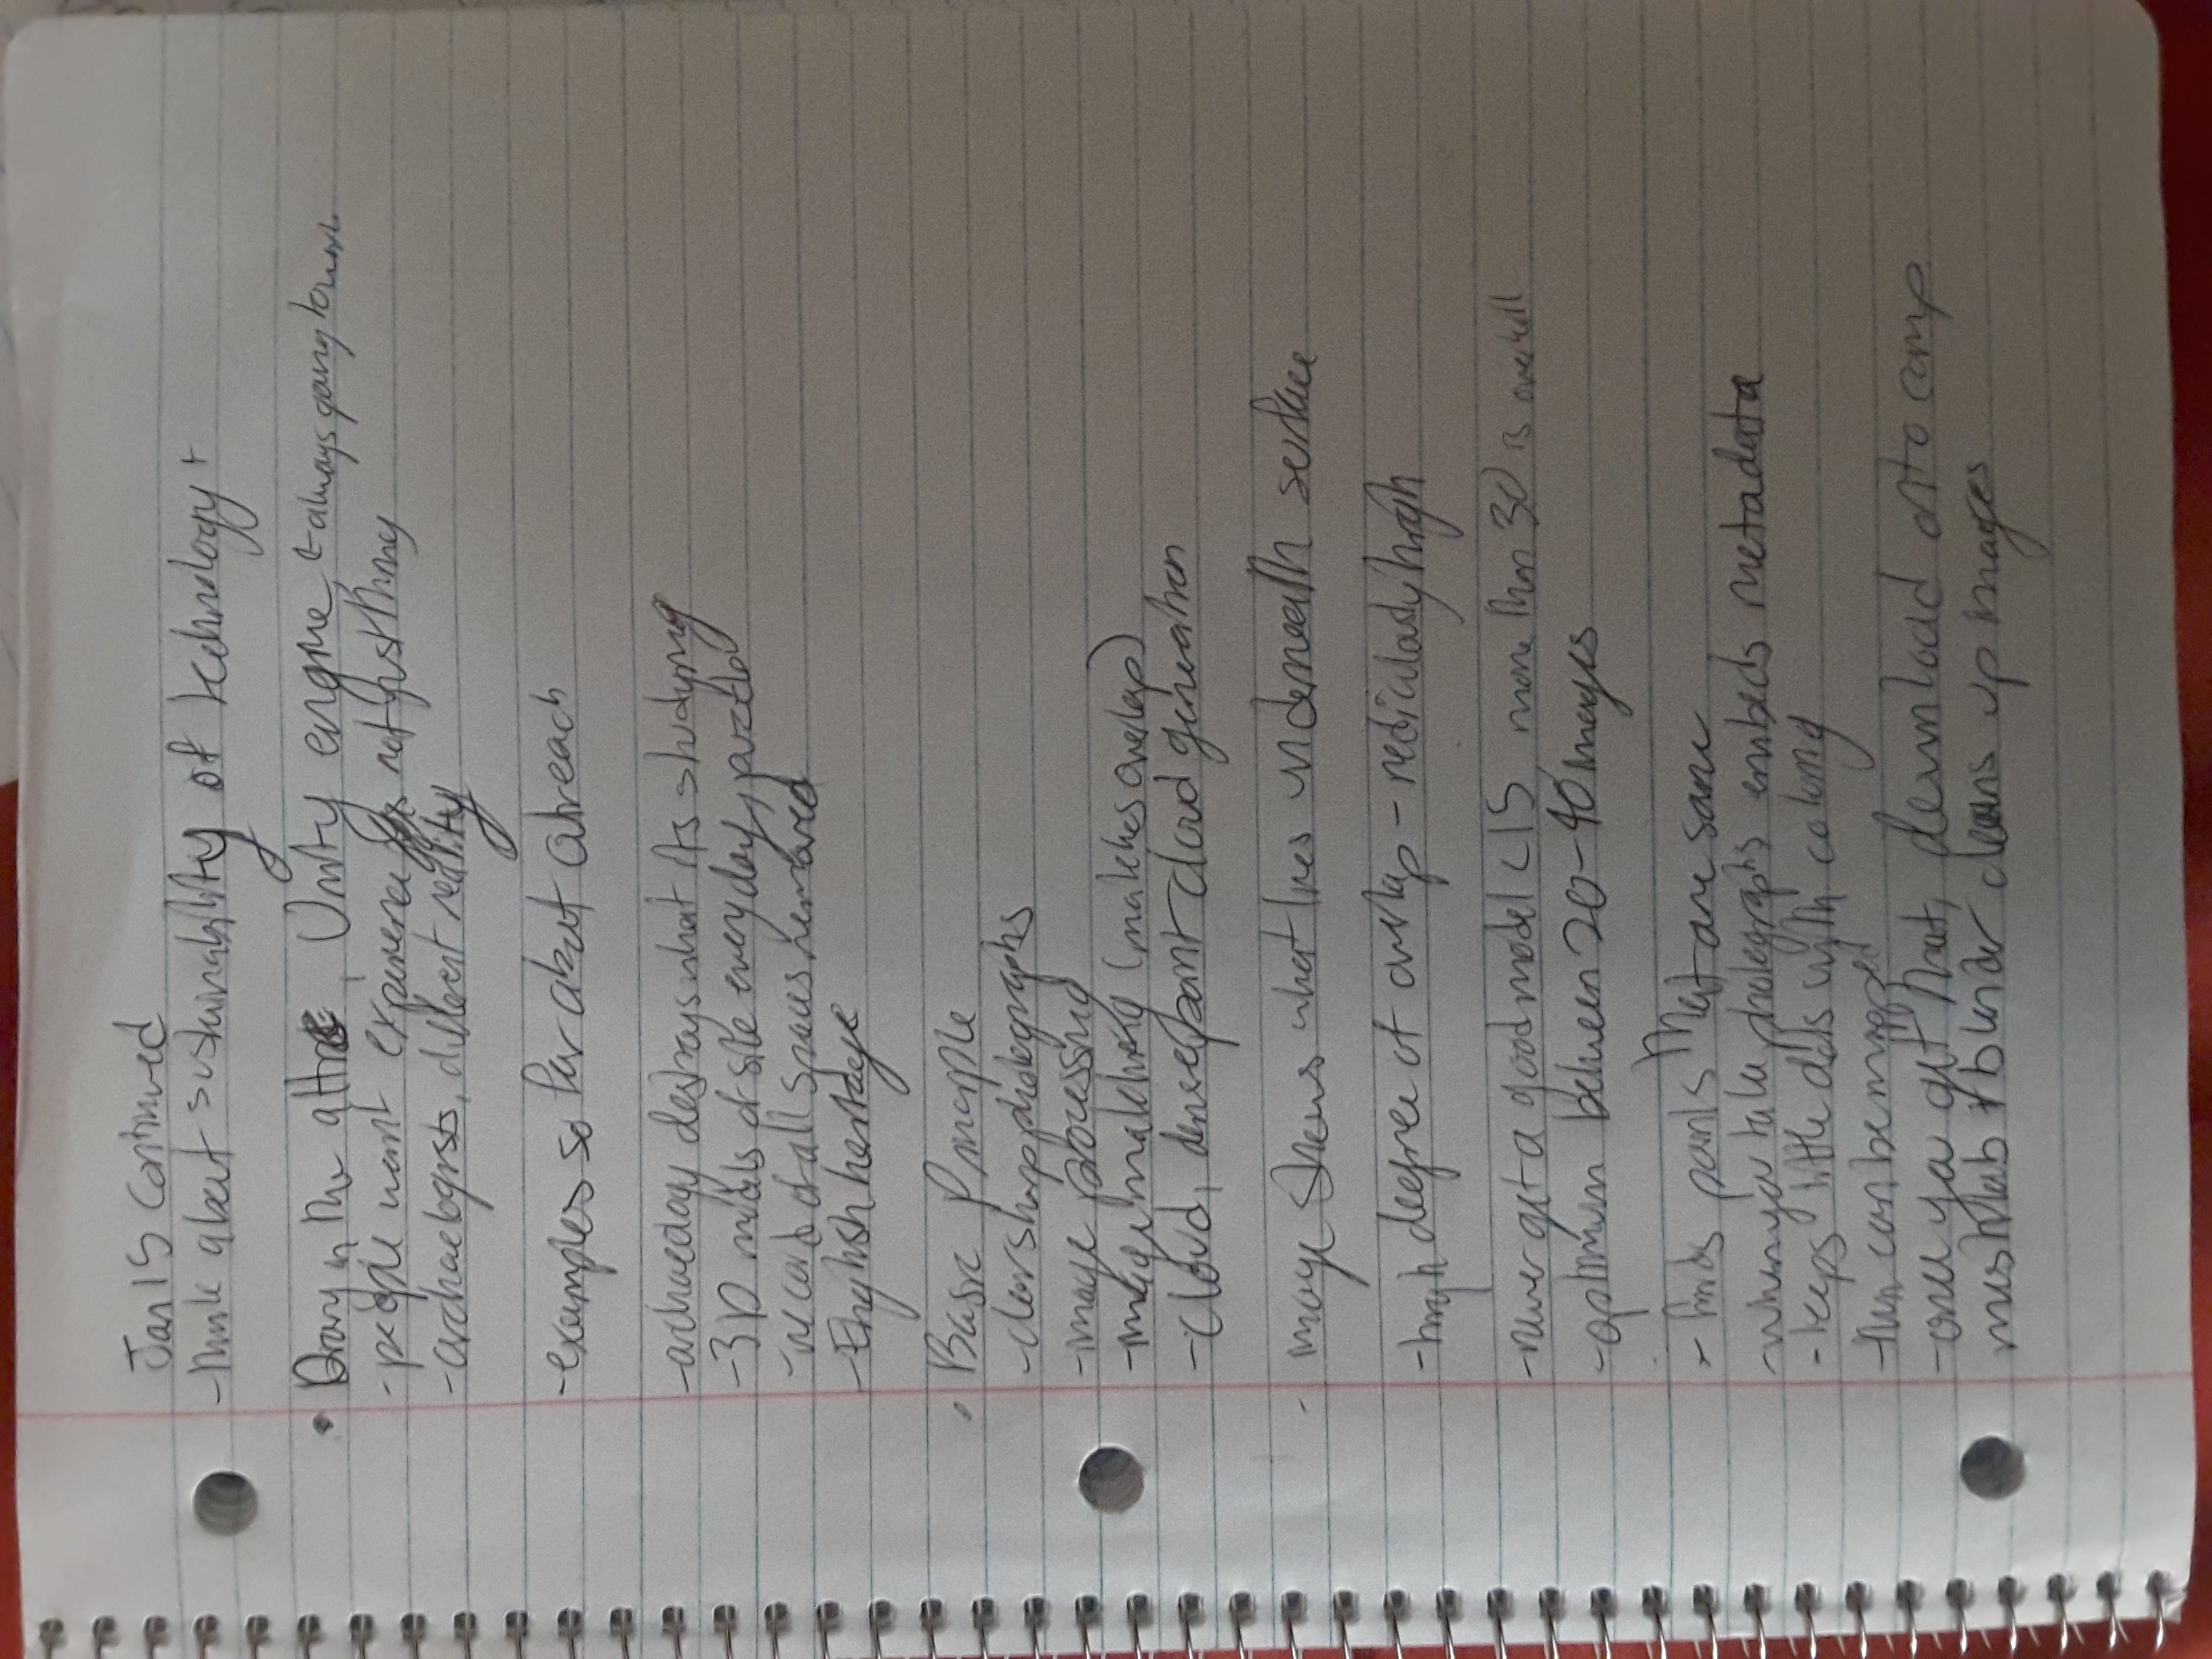 Jan 15 Continued
- think about sustainability of technology +
• Diary in the attic, Unity engine ← always going forward
- people want experience not just thing
- archaeologists, different reality
- examples so far about outreach
- archaeology destroys what its studying
- 3D models of site every day,
- record of all spaces removed
- English heritage
• Basic Principle
- clear sharp photographs
- image processing
- image matching (matches overlap)
- cloud, dense point cloud generation
• image skews what lies underneath surface
- high degree of overlap - rediculously high
- never get a good model <15 more than 30 is overkill
- optimum between 20-40 images
- finds points that are same
- when you take photographs embeds metadata
- keeps little dots with
- then can be mapped
- once you get that, download onto comp
meshlab + blender cleans up images